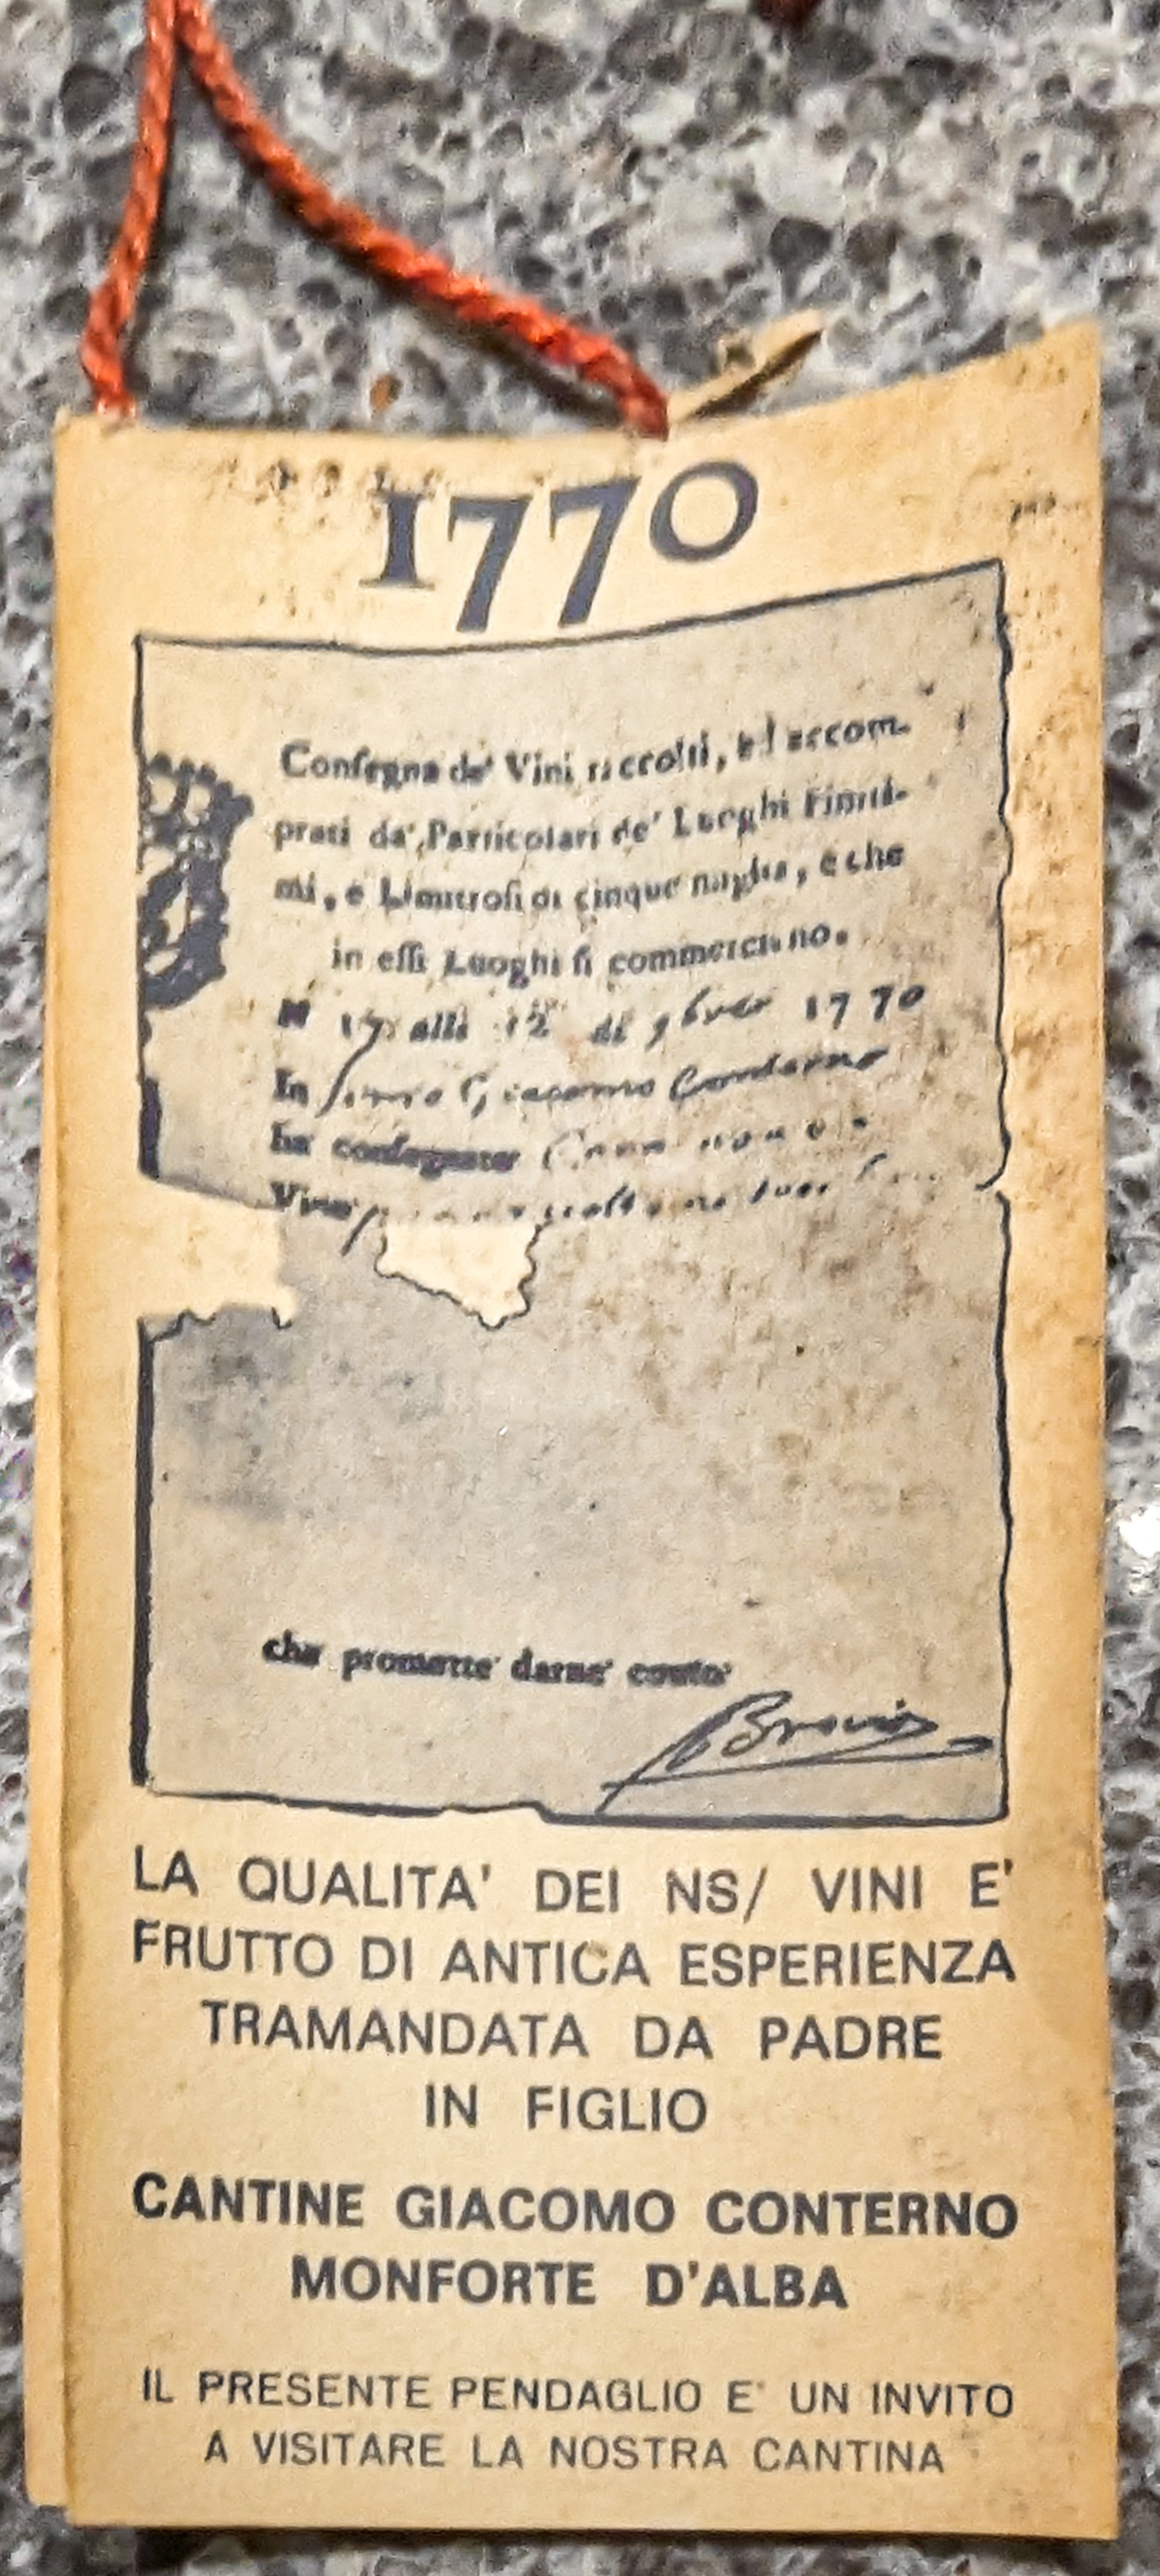 1770
Consegna de' Vini raccolti, ed accom-
prati da' Particolari de' Luoghi Finiti-
mi, e Limitrofi di cinque miglia, e che
in essi Luoghi si commerciano.
N 17 alli 12 di 9bre 1770
In Giacomo Conterno
ha consegnato
Vino
che promette darne conto
LA QUALITA' DEI NS/ VINI E'
FRUTTO DI ANTICA ESPERIENZA
TRAMANDATA DA PADRE
IN FIGLIO
CANTINE GIACOMO CONTERNO
MONFORTE D'ALBA
IL PRESENTE PENDAGLIO E' UN INVITO
A VISITARE LA NOSTRA CANTINA